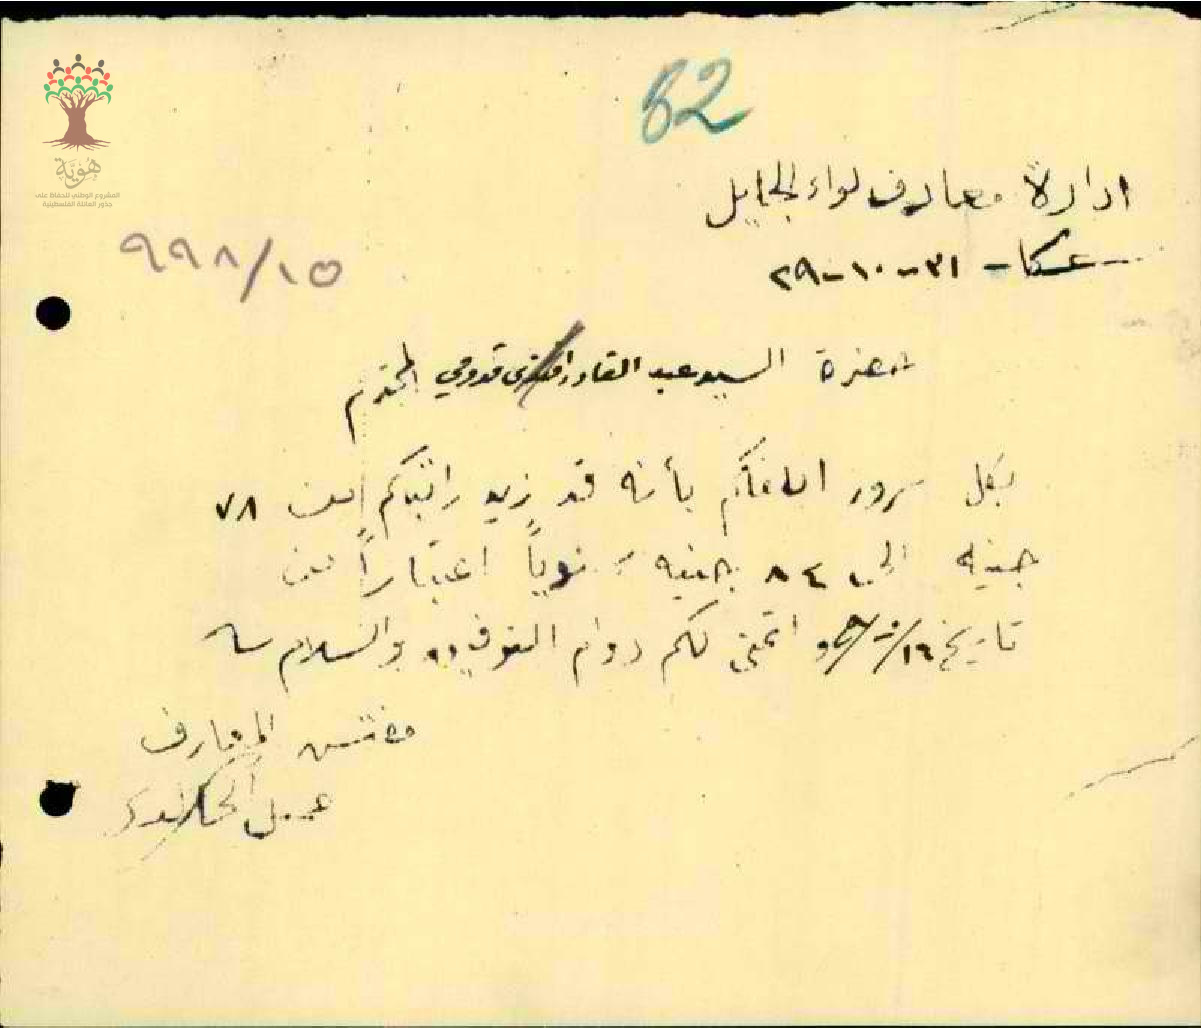 82
هُوِيَّة
المشروع الوطني للحفاظ على
جذور العائلة الفلسطينية
ادارة معارف لواء الجليل
عكا - ٣١-١٠-٢٩
٩٩٨/١٥
حضرة السيد عبد القادر افندي قدومي المحترم
بكل سرور ابلغكم بأنه قد زيد راتبكم من ٧٨
جنيه الى ٨٤ جنيه سنوياً اعتباراً من
تاريخ واتمنى لكم دوام التوفيق والسلام
مفتش المعارف